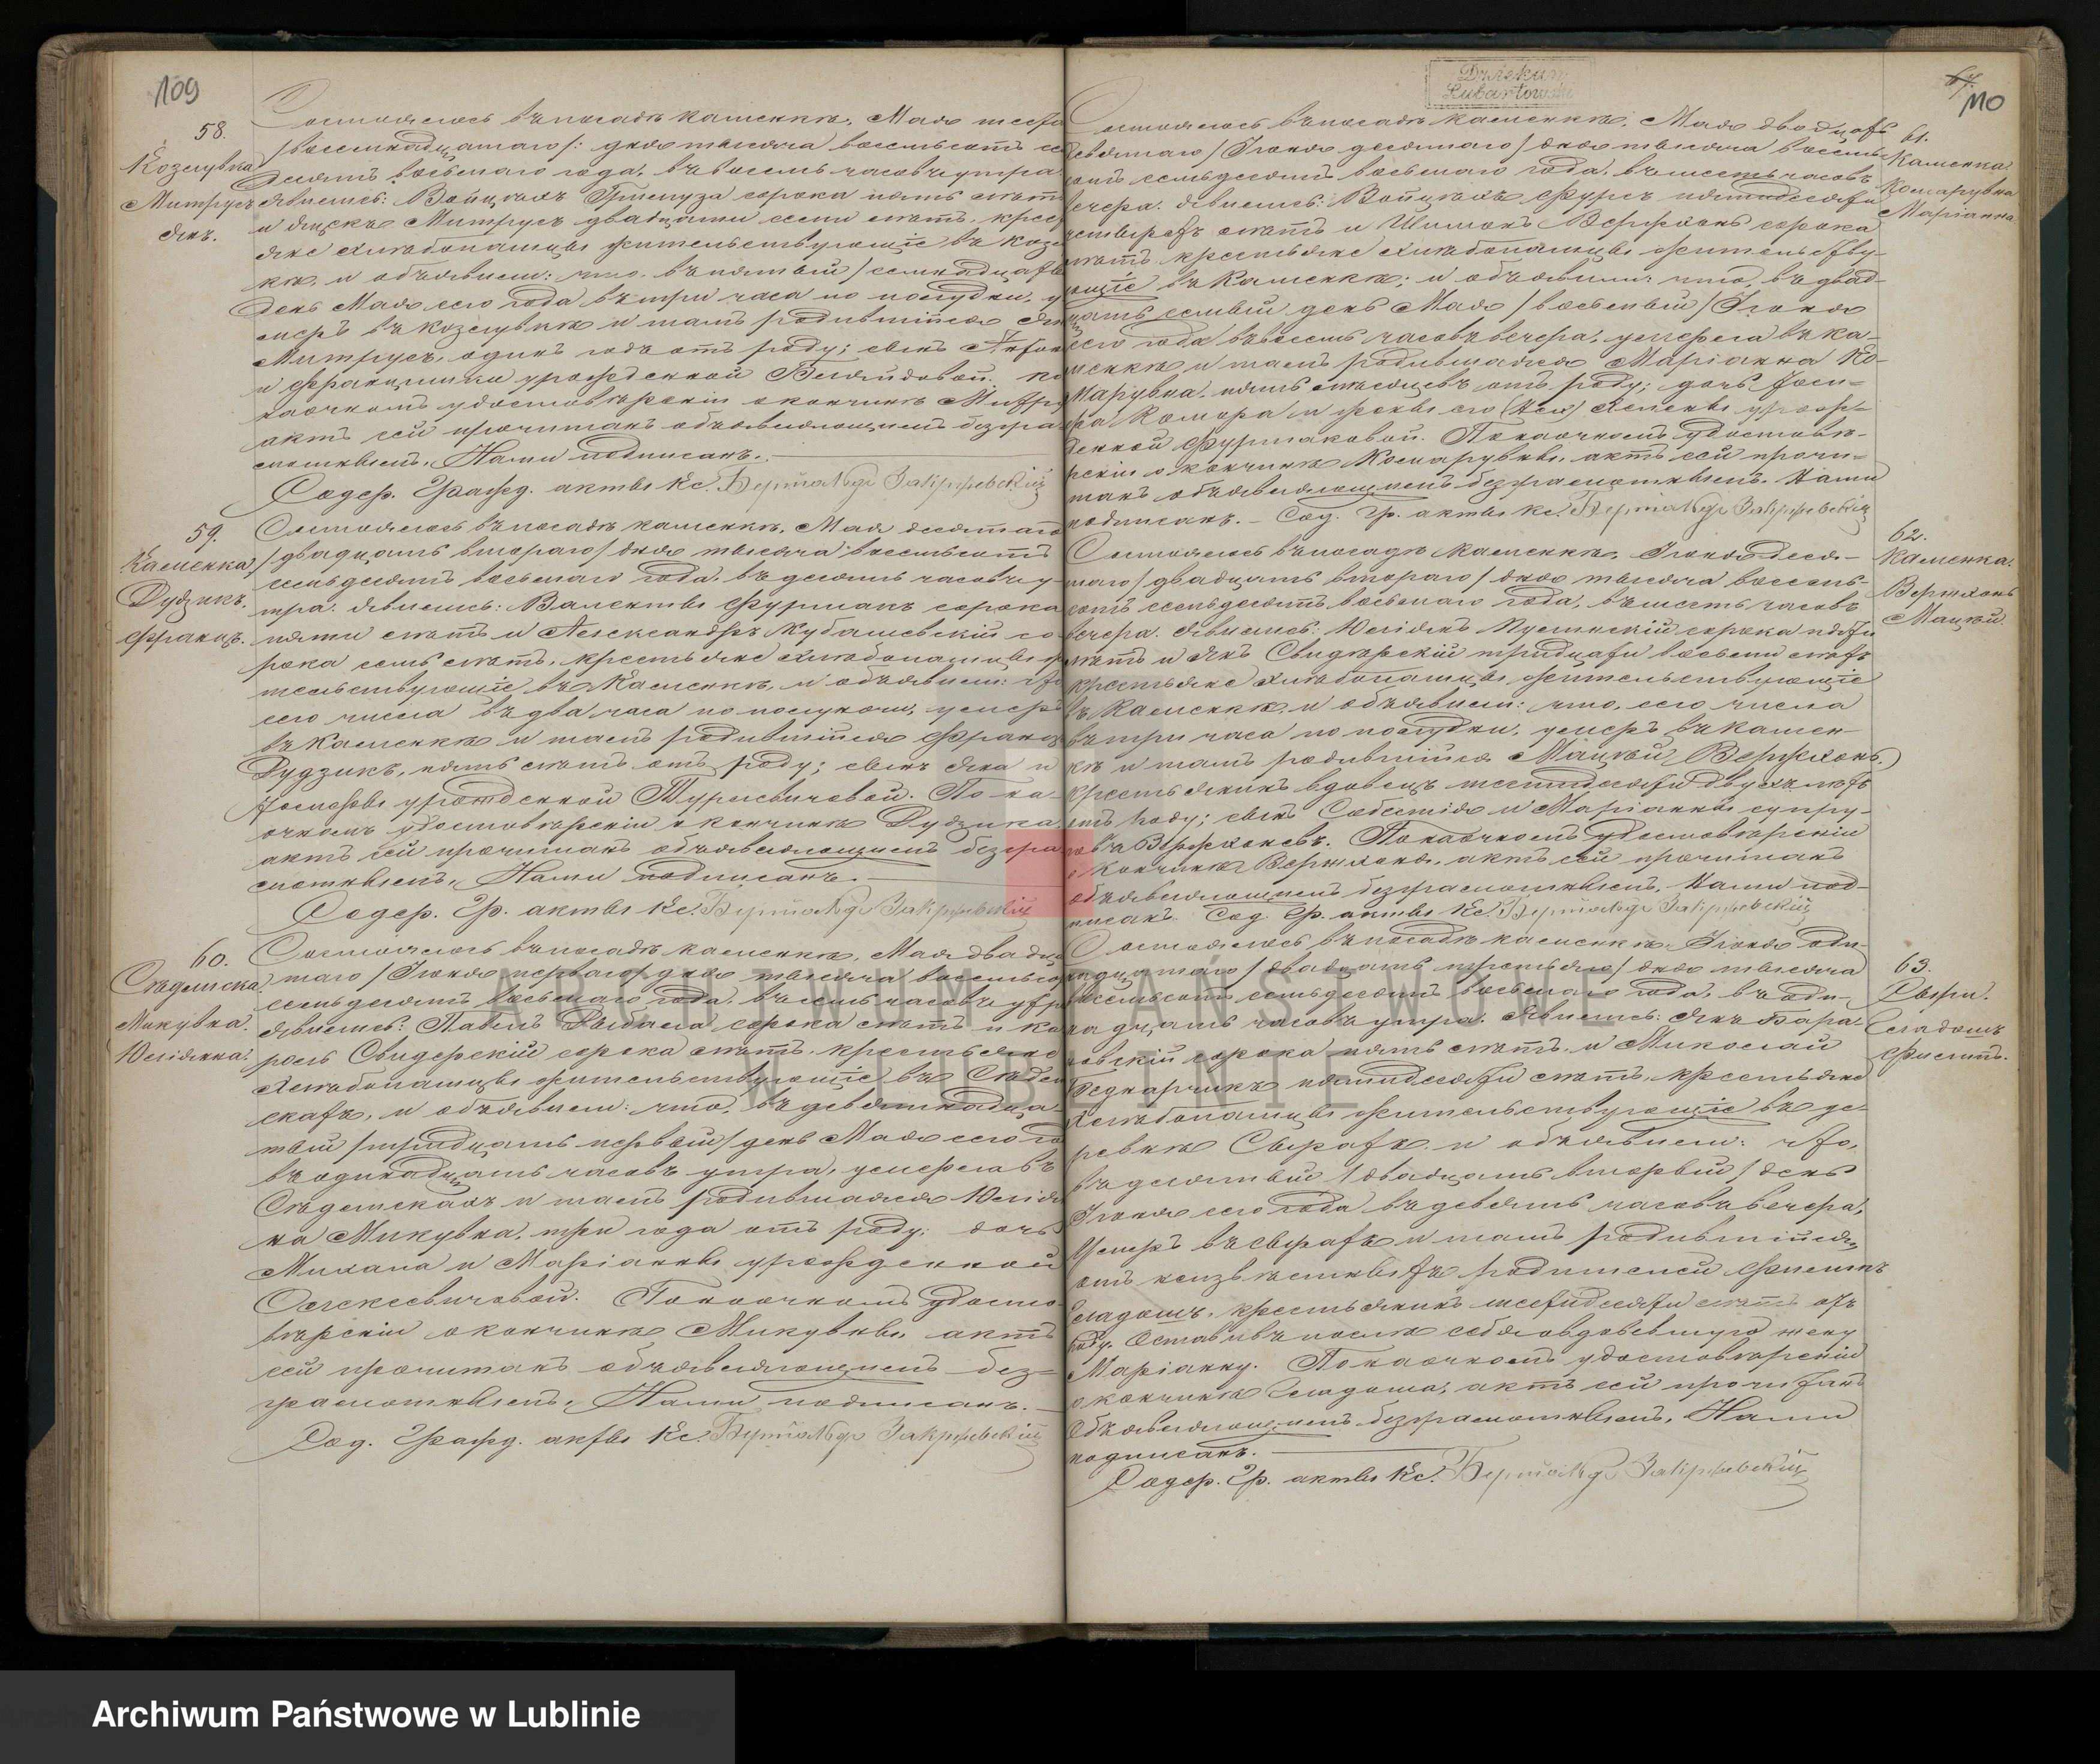 109
58.
Козлувка
Митрусъ
Янъ.
Состоялось въ посадѣ Каменкѣ, Мая шеста
/восемнадцатаго/: дня тысяча восемьсотъ се
десятъ восьмаго года, въ восемь часовъ утра.
явились: Войцѣхъ сорока пять лѣтъ
и Яцекъ Митрусъ двадцати семи лѣтъ, крес
яне хлѣбопашцы жительствующіе въ Козл
кѣ, и объявили: что, въ пятый /семнадцаты
день Мая сего года въ три часа по полудни, у
меръ въ Козлувкѣ и тамъ родившійся Ян
Митрусъ, одинъ годъ отъ роду; сынъ Антон
и Францишки урожденной . По на
наочномъ удостовѣреніи о кончинѣ Митру
актъ сей прочитанъ объявляющимъ безгра
мотнымъ, Нами подписанъ.
Содер. Гражд. акты Кс. Закржевскій
59.
Каменка
Дудзикъ.
Франц.
Состоялось въ посадѣ Каменкѣ, Мая десятаго
/двадцать втораго/ дня тысяча восемьсотъ
семьдесятъ восьмаго года, въ десять часовъ у-
тра. явились: Валенты Фурманъ сорока
пяти лѣтъ и Александръ Кубашевскій со-
рока семь лѣтъ, крестьяне хлѣбопашцы ж
тельствующіе въ Каменкѣ, и объявили: что
сего числа въ два часа по полуночи, умеръ
въ Каменкѣ и тамъ родившійся Франц
Дудзикъ, пять лѣтъ отъ роду; сынъ Яна и
Іосифы урожденной . По на-
очномъ удостовѣреніи о кончинѣ Дудзика,
актъ сей прочитанъ объявляющимъ безгра
мотнымъ, Нами подписанъ.
Содер. Гр. акты Кс. Закржевскій
60.
Стадниска
Микувна.
Юліянна.
Состоялось въ посадѣ Каменкѣ, Мая двадца
таго /Іюня перваго/ дня тысяча восемьсо
семьдесятъ восьмаго года, въ семь часовъ утра
явились: Павелъ Рыбака сорока лѣтъ и Ка
роль Свидерскій сорока лѣтъ, крестьяне
хлѣбопашцы жительствующіе въ
скахъ, и объявили: что, въ девятнадца-
тый /тридцать первый/ день Мая сего го
въ одинадцать часовъ утра, умерла въ
и тамъ родившаяся Юлія
на Микувна, три года отъ роду; дочь
Михала и Маріанны урожденной
Олексевичовой. По наочномъ удосто-
вѣреніи о кончинѣ Микувны, актъ
сей прочитанъ объявляющимъ без-
грамотнымъ, Нами подписанъ.
Сод. Гражд. акты Кс. Закржевскій
Dziekan
Lubartowski
110
61.
Каменка.
Комарувна
Маріанна
Состоялось въ посадѣ Каменкѣ, Мая двадцать
девятаго /Іюня десятаго/ дня тысяча восемь-
сотъ семьдесятъ восьмаго года, въ шесть часовъ
вечера. явились: Войцѣхъ пятидесяти
четырехъ лѣтъ и Шимонъ Вержхонь сорока
лѣтъ крестьяне хлѣбопашцы жительству-
ющіе въ Каменкѣ; и объявили: что, въ двад-
цать седьмый день Мая /восьмый/ Іюня
сего года въ восемь часовъ вечера, умерла въ Ка-
менкѣ и тамъ родившаяся Маріанна Ко-
марувна, пять мѣсяцевъ отъ роду; дочь Іоси-
фа Комора и жены его урож-
денной Фурмаковой. По наочномъ удостовѣ-
реніи о кончинѣ Комарувны, актъ сей прочи-
танъ объявляющимъ безграмотнымъ, Нами
подписанъ. — Сод. Гр. акты Кс. Закржевскій
62.
Каменка.
Вержхонь
Мацѣй.
Состоялось въ посадѣ Каменкѣ, Іюня деся-
таго /двадцать втораго/ дня тысяча восемь-
сотъ семьдесятъ восьмаго года, въ шесть часовъ
вечера. явились: Юліянъ сорока пяти
лѣтъ и Янъ Свидерскій тридцати восьми лѣтъ
крестьяне хлѣбопашцы жительствующіе
въ Каменкѣ, и объявили: что, сего числа
въ три часа по полудни, умеръ въ Камен-
кѣ и тамъ родившійся Мацѣй Вержхонь,
крестьянинъ вдовецъ шестидесяти двухъ лѣтъ
отъ роду; сынъ Собестіяна и Маріанны супру-
говъ Вержхоневъ. По наочномъ удостовѣреніи
о кончинѣ Вержхоня, актъ сей прочитанъ
объявляющимъ безграмотнымъ, Нами под-
писанъ. Сод. Гр. акты Кс. Закржевскій
63.
Сыры.
Гладошъ
Филипъ.
Состоялось въ посадѣ Каменкѣ, Іюня оди-
надцатаго /двадцать третьяго/ дня тысяча
восемьсотъ семьдесятъ восьмаго года, въ оди-
надцать часовъ утра. явились: Янъ Бара-
новскій сорока пять лѣтъ, и Миколай
Беднарчикъ пятидесяти лѣтъ, крестьяне
хлѣбопашцы жительствующіе въ де-
ревнѣ Сырахъ, и объявили: что,
въ десятый /двадцать вторый/ день
Іюня сего года въ девять часовъ вечера,
Умеръ въ Сырахъ и тамъ родившійся,
отъ неизвѣстныхъ родителей Филипъ
Гладошъ, крестьянинъ шестидесяти лѣтъ отъ
роду. Оставивъ послѣ себя овдовѣвшую жену
Маріанну. По наочномъ удостовѣреніи
о кончинѣ Гладоша, актъ сей прочитанъ
объявляющимъ безграмотнымъ, Нами
подписанъ.
Содер. Гр. акты Кс. Закржевскій
ARCHIWUM PAŃSTWOWE
W LUBLINIE
Archiwum Państwowe w Lublinie